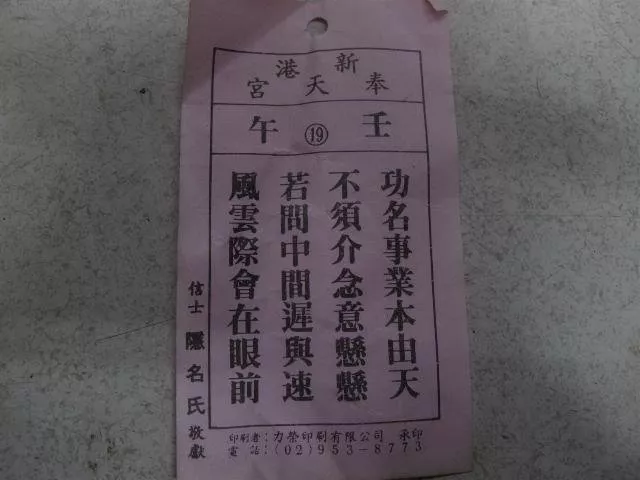 新港
奉天宮
壬 ⑲ 午
功名事業本由天
不須介念意懸懸
若問中間遲與速
風雲際會在眼前
信士 隱名氏 敬獻
印刷者：力榮印刷有限公司 承印
電話：(02)953-8773